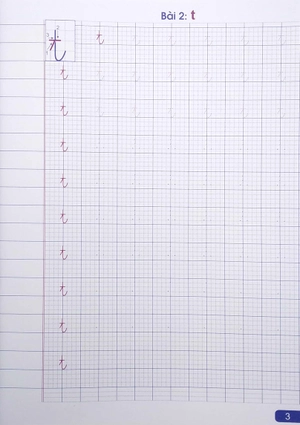 Bài 2: t
t t
t
t
t
t
t
t
t
t
t
3